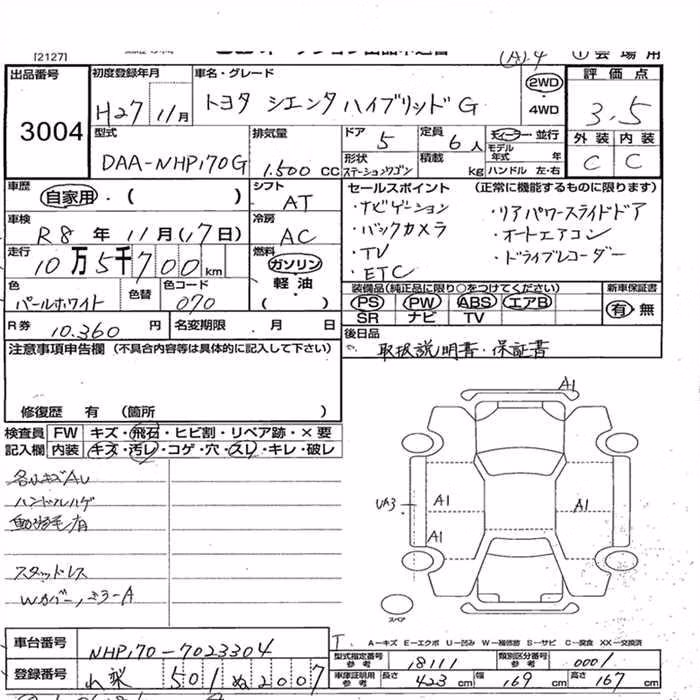 [2127]
(A)4 ① 会 場 用
出品番号 3004
初度登録年月 H27 11月
車名・グレード トヨタ シエンタ ハイブリッド G
2WD ・ 4WD
評価点 3.5
外装 内装
C C
型式 DAA-NHP170G
排気量 1.500 cc
ドア 5
定員 6人
形状 ステーションワゴン
積載 kg
ディーラー 並行
モデル年式 年
ハンドル 左・右
車歴 自家用・( )
シフト AT
車検 R8 年 11月(17日)
冷房 AC
走行 10万5千700km
燃料 ガソリン 軽油 ( )
色 パールホワイト
色替
色コード 070
セールスポイント (正常に機能するものに限ります)
・ナビゲーション ・リアパワースライドドア
・バックカメラ ・オートエアコン
・TV ・ドライブレコーダー
・ETC
装備品(純正品に限り○をつけてください) 新車保証書
PS PW ABS エアB 有・無
SR ナビ TV
R券 10.360 円
名変期限 月 日
後日品 取扱説明書・保証書
注意事項申告欄 (不具合内容等は具体的に記入して下さい)
修復歴 有 (箇所 )
検査員 FW キズ・飛石・ヒビ割・リペア跡・×要
記入欄 内装 キズ・汚レ・コゲ・穴・スレ・キレ・破レ
ハンドルハゲ
スタッドレス
Wカバー,ミラーA
A1
UA3 A1 A1
A1
スペア
A-キズ E-エクボ U-凹み W-補修跡 S-サビ C-腐食 XX-交換済
車台番号 NHP170-7023304
型式指定番号 参考 18111
類別区分番号 参考 0001
登録番号 山梨 501 ぬ 2007
車庫証明用 参考 長さ 423 cm 幅 169 cm 高さ 167 cm